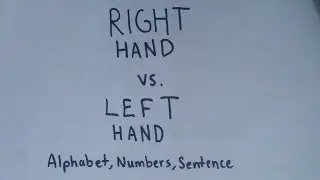 RIGHT
HAND
vs.
LEFT
HAND
Alphabet, Numbers, Sentence